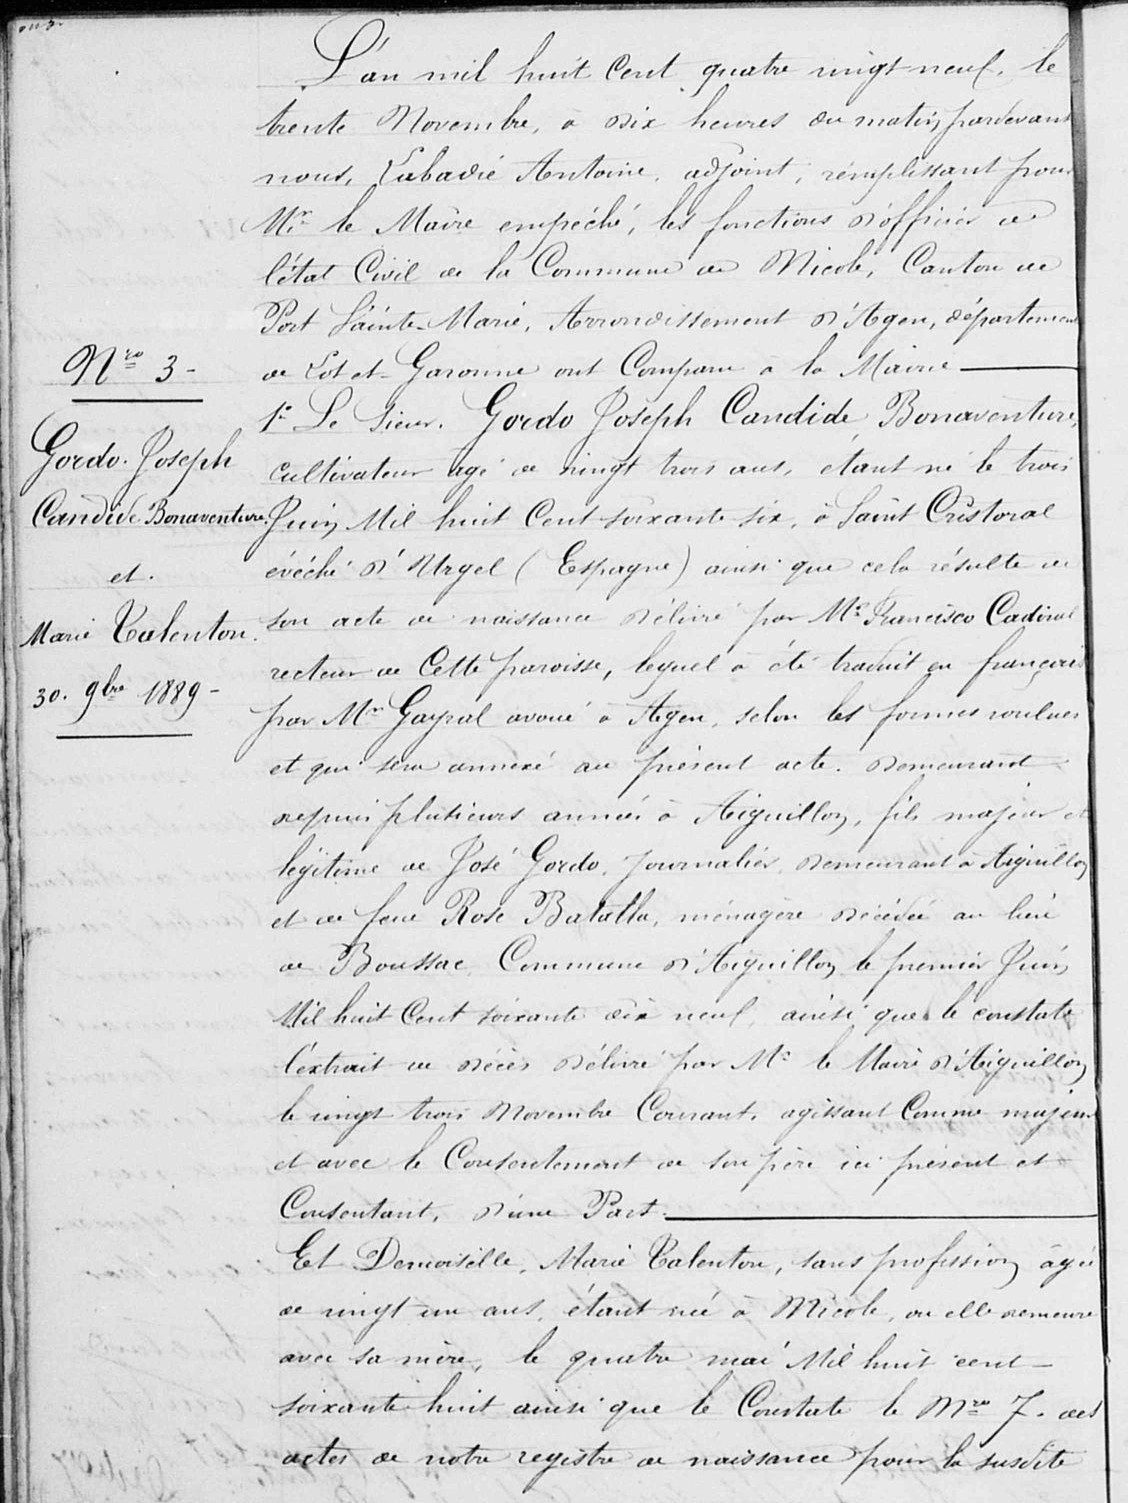 L'an mil huit Cent quatre vingt neuf, le
trente Novembre, à dix heures du matin, pardevant
nous, Labadie Antoine, adjoint, remplissant pour
Mr le Maire empéché, les fonctions d'officier de
l'état Civil de la Commune de Nicole, Canton de
Port Sainte-Marie, Arrondissement d'Agen, département
de Lot et Garonne ont Comparu à la Mairie
1º Le Sieur Gordo Joseph Candide Bonaventure,
cultivateur agé de vingt trois ans, étant né le trois
Juin Mil huit Cent soixante six, à Saint Cristoval
évéché d'Urgel (Espagne) ainsi que cela résulte de
son acte de naissance délivré par Mr Francisco Cadinal
recteur de Cette paroisse, lequel a été traduit en français
par Mr Gayral avoué à Agen, selon les formes voulues
et qui sera annexé au présent acte. demeurant
depuis plusieurs années à Aiguillon, fils majeur et
légitime de José Gordo, Journalier, demeurant à Aiguillon
et de feue Rose Batalla, ménagère décédée au lieu
de Boussac, Commune d'Aiguillon, le premier Juin
Mil huit Cent soixante dix neuf, ainsi que le constate
l'extrait de décès délivré par Mr le Maire d'Aiguillon
le vingt trois Novembre Courant, agissant Comme majeur
et avec le Consentement de son père ici présent et
Consentant, d'une Part.
Et Demoiselle, Marie Talenton, sans profession, âgée
de vingt un ans, étant née à Nicole, ou elle demeure
avec sa mère, le quatre mai Mil huit cent
soixante huit ainsi que le Constate le Nro 7. des
actes de notre registre de naissance pour la susdite
Nro 3-
Gordo. Joseph
Candide Bonaventure.
et.
Marie Talenton.
30. 9bre 1889-